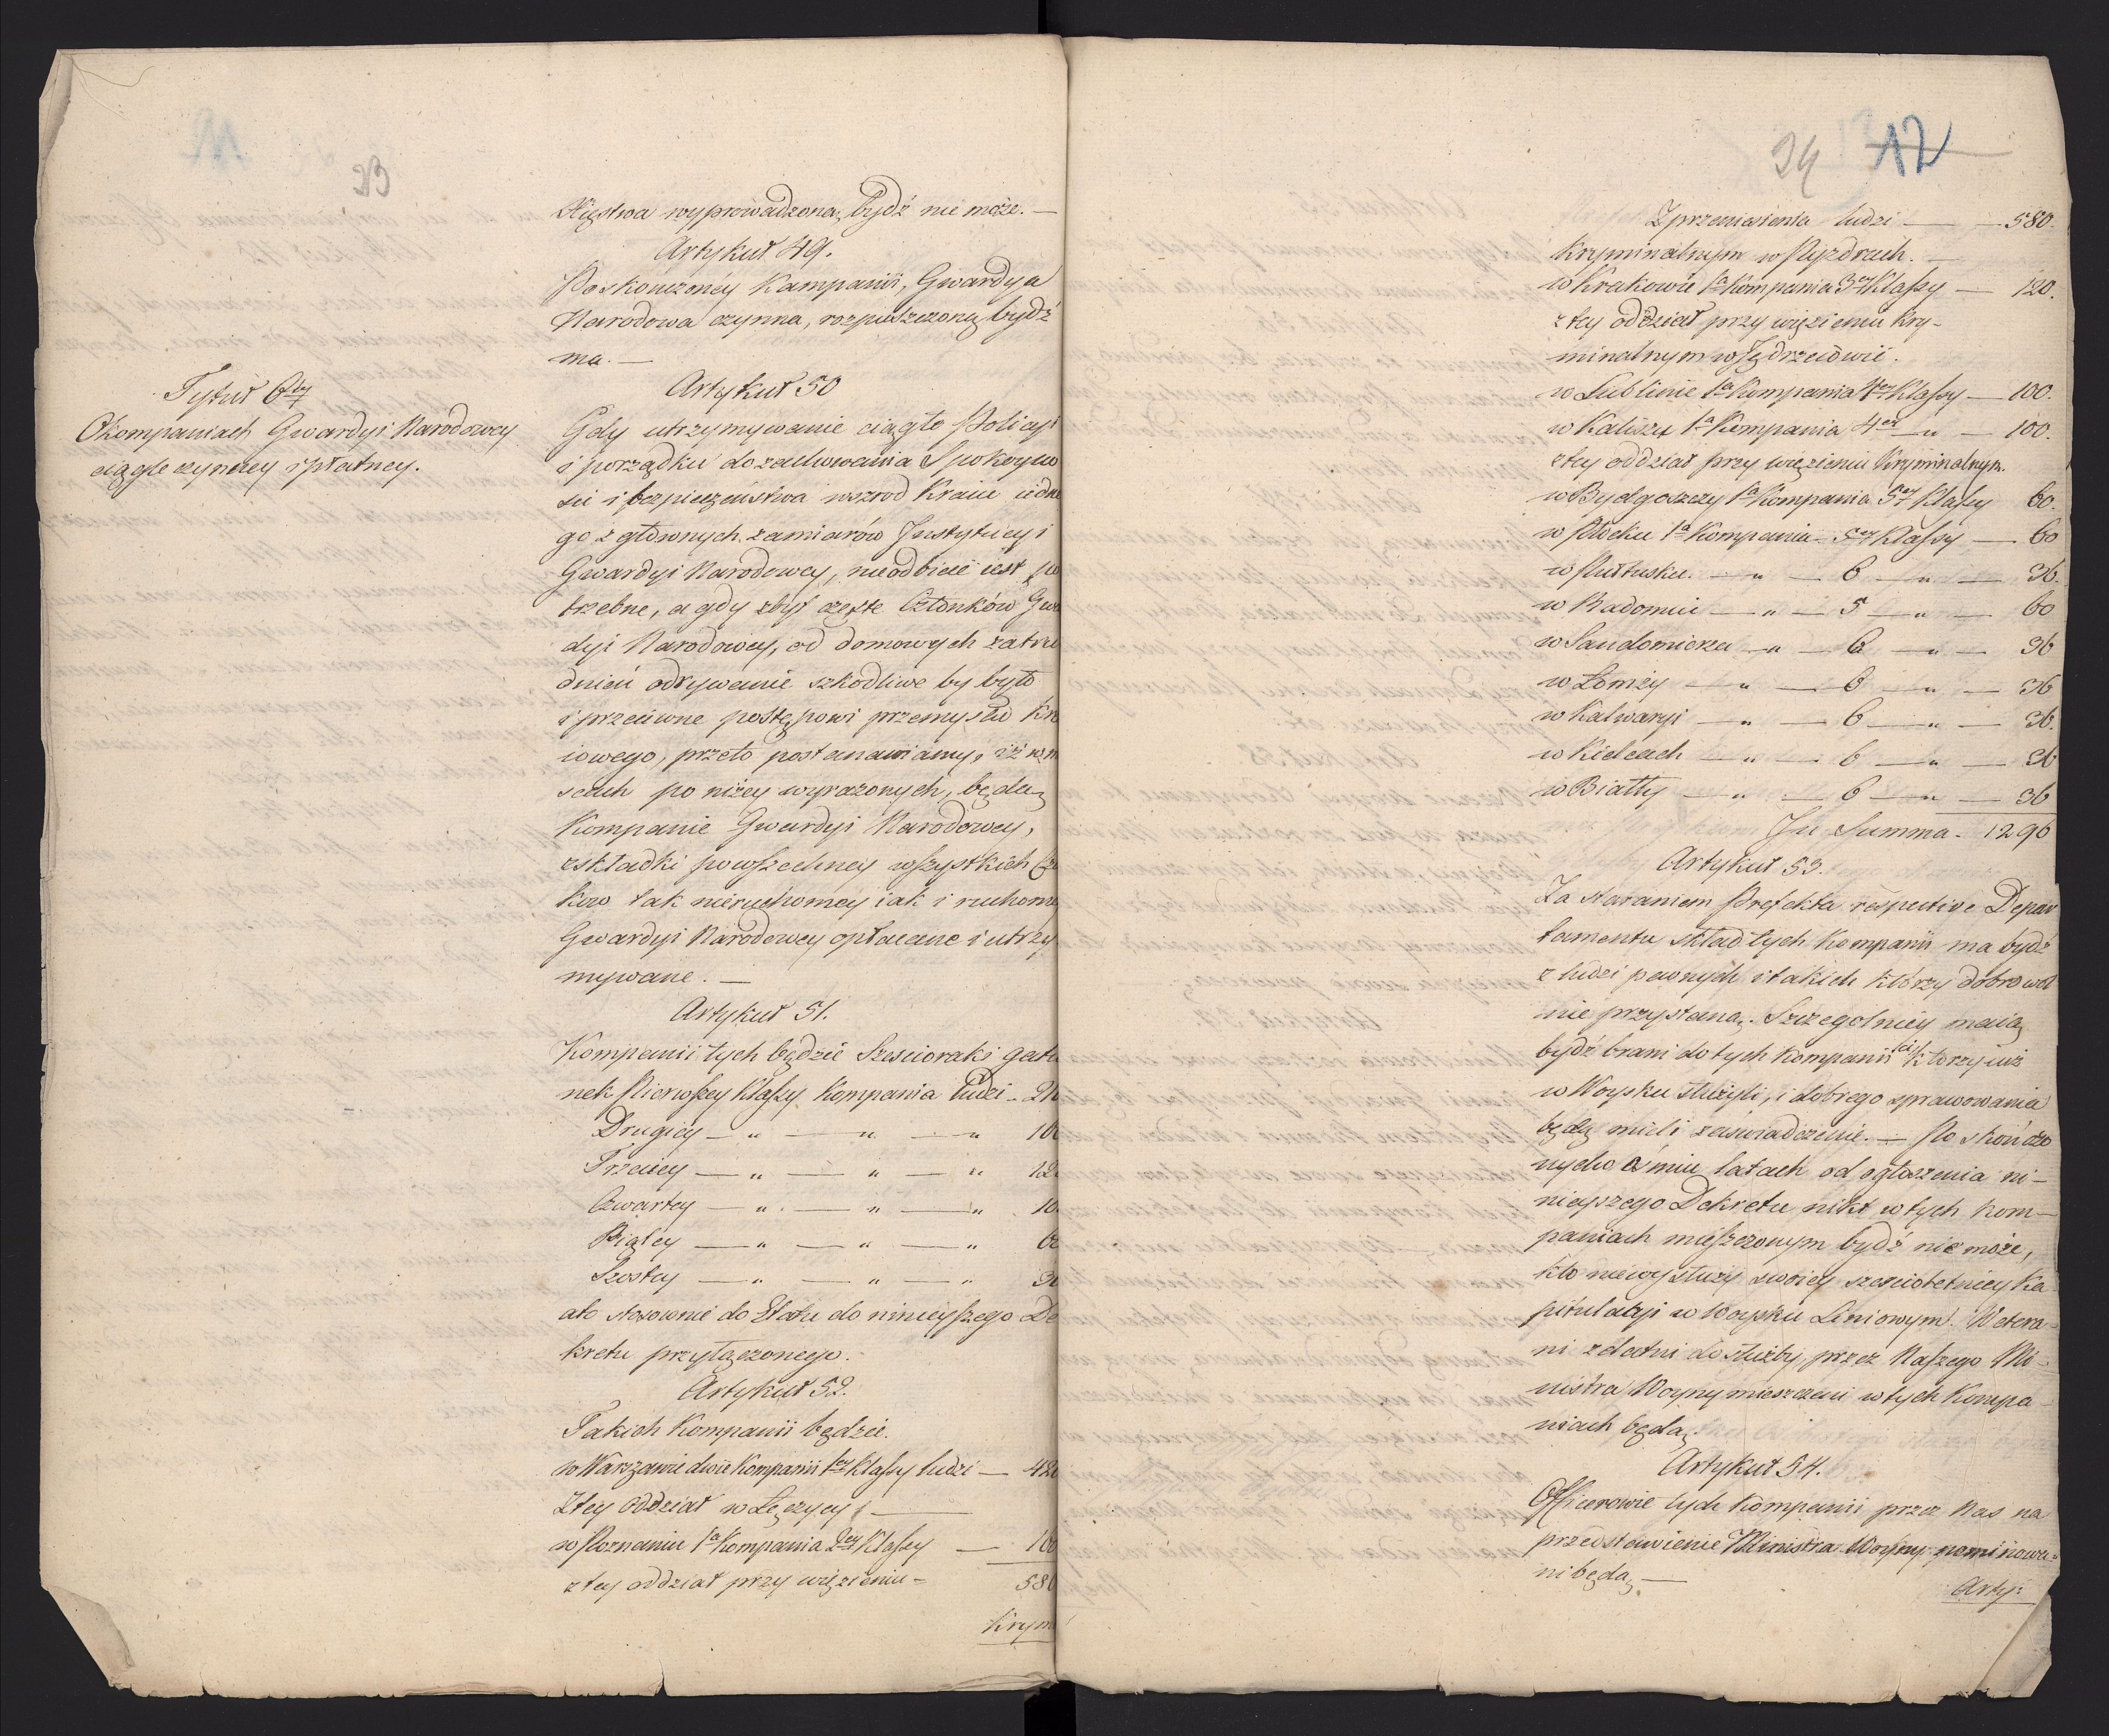 23
Xięstwa wyprowadzona, bydź nie może. —
Artykuł 49.
Po skończoney Kampanii, Gwardya
Narodowa czynna, rozpuszczoną bydź
ma. —
Artykuł 50
Tytuł 6ty
O kompaniach Gwardyi Narodowey
ciągle czynney i płatney.
Gdy utrzymywanie ciągłe Policyi
i porządku do zachowania Spokoyno
ści i bezpieczeństwa wsrod Kraiu iedne
go z głównych zamiarów Instytucyi
Gwardyi Narodowey, nieodbicie iest po
trzebne, a gdy zbyt częste Członków Gwar
dyi Narodowey, od domowych zatru
dnień odrywanie szkodliwe by było
i przeciwne postępowi przemysłu Kra
iowego, przeto postanawiamy, iż w m
scach po niżey wyrazonych, będą
Kompanie Gwardyi Narodowey,
z składki powszechney wszystkich Czł
kow tak nieruchomey iak i ruchomey
Gwardyi Narodowey opłacane i utrzy
mywane. —
Artykuł 51.
Kompanii tych będzie Szescioraki gatu
nek Pierwszey Klassy Kompania ludzi - 24
Drugiey — " — " — " 10
Trzeciey — " — " — " 12
Czwartey — " — " — " 10
Piątey — " — " — " 6
Szostey — " — " — " 3
a to stosownie do Etatu do ninieyszego De
kretu przyłączonego.
Artykuł 52.
Takich Kompanii będzie.
w Warszawie dwie Kompanii 1ey Klassy ludzi — 480
Z tey oddział w Łęczycy, —
w Poznaniu 1a Kompania 2ey Klassy — 100
z tey oddział przy więzieniu = 580
Krym
24 12
Z przeniesienia ludzi — 580.
Kryminalnym w Pyzdrach. —
w Krakowie 1a Kompania 3ey Klassy — 120.
z tey oddział przy więzieniu Kry-
minalnym w Jędrzeiowie.
w Lublinie 1a Kompania 4ey Klassy — 100.
w Kaliszu 1a Kompania 4ey — " — 100.
z tey oddział przy więzieniu Kryminalnym.
w Bydgoszczy 1a Kompania 5ey Klassy 60.
w Płocku 1a Kompania 5ey Klassy — 60
w Pułtusku. — " — 6 — " — 36.
w Radomiu — " — 5 — " — 60
w Sandomierzu — " — 6 — " — 36
w Łomży — " — 6 — " — 36
w Kalwaryi — " — 6 — " — 36.
w Kielcach — " — 6 — " — 36
w Białły — " — 6 — " — 36
In Summa - 1296
Artykuł 53.
Za staraniem Prefekta respective Depar
tamentu skład tych Kompanii ma bydź
z ludzi pewnych i takich którzy dobrowol
nie przystaną. Szczegolniey maią
bydź brani do tych Kompanii ci, ktorzy iuż
w Woysku służyli, i dobrego sprawowania
będą mieli zaswiadczenie. — Po skończo
nych ośmiu latach od ogłoszenia ni-
nieyszego Dekretu nikt w tych Kom-
paniach mieszczonym bydź nie może,
kto niewysłuży swoiey szescioletniey Ka
pitulacyi w Woysku Liniowym. Wetera-
ni zdatni do służby, przez Naszego Mi-
nistra Woyny mieszczeni w tych Kompa
niach będą.
Artykuł 54.
Officerowie tych Kompanii przez Nas na
przedstawienie Ministra Woyny nominowa=
ni będą. —
Arty: